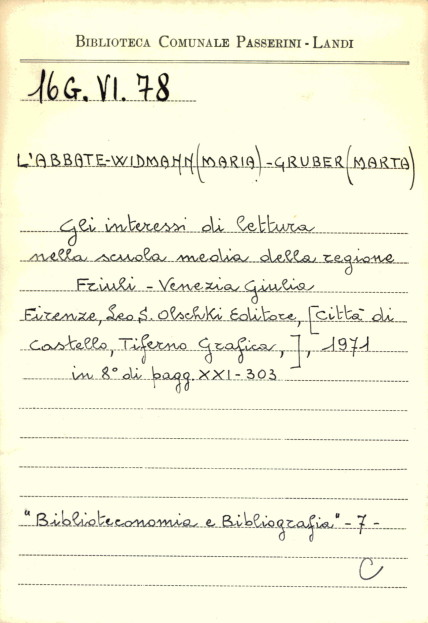 BIBLIOTECA COMUNALE PASSERINI - LANDI
16G. VI. 78
L'ABBATE-WIDMANN (MARIA) - GRUBER (MARTA)
Gli interessi di lettura
nella scuola media della regione
Friuli - Venezia Giulia
Firenze, Leo S. Olschki Editore, [Città di
Castello, Tiferno Grafica, ], 1971
in 8° di pagg. XXI - 303
"Biblioteconomia e Bibliografia" - 7 -
C